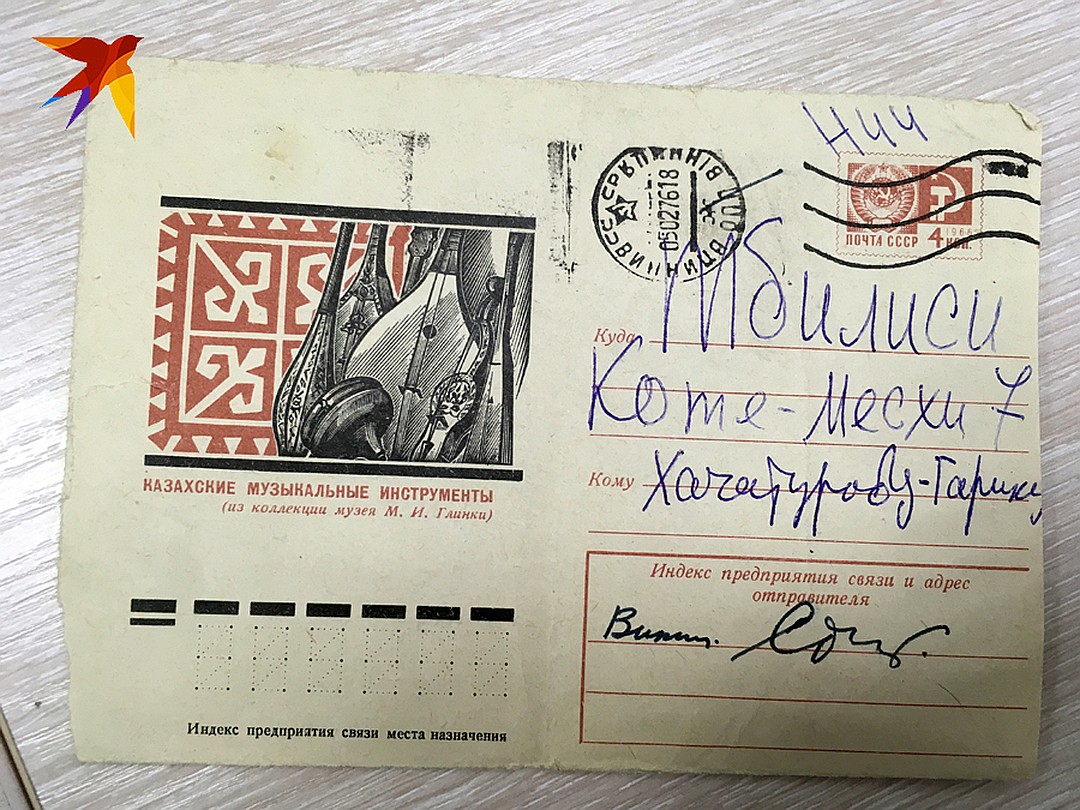 НЧЧ
СССР
050276 18
ПОЧТА СССР 4 КОП.
1966
Куда Тбилиси
Коте-Месхи 7
Кому Хачатурову-Гарику
КАЗАХСКИЕ МУЗЫКАЛЬНЫЕ ИНСТРУМЕНТЫ
(из коллекции музея М. И. Глинки)
Индекс предприятия связи и адрес
отправителя
Винн.
Индекс предприятия связи места назначения